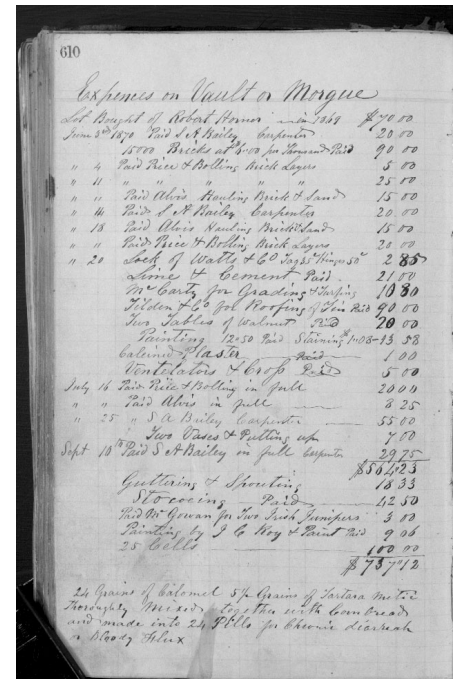 610
Expences on Vault or Morgue
Lot Bought of Robert Hornor in 1869 $70.00
June 3rd 1870 Paid S A Bailey Carpenter 20 00
15000 Bricks at $6.00 per Thousand Paid 90 00
" 4 Paid Rice & Bolling Brick Layers 5 00
" 11 " " " " " 25 00
" " Paid Alvis Hauling Brick & Sand 15 00
" 14 Paid S A Bailey Carpenter 20 00
" 18 Paid Alvis Hauling Brick & Sand 15 00
" " Paid Rice & Bolling Brick Layers 20 00
" 20 Lock of Watts & Co Rings 50c 2 85
Lime & Cement Paid 21 00
McCarty for Grading & Turfing 10 80
Tilden & Co for Roofing of Tin Paid 90 00
Two Tables of Walnut Paid 20 00
Painting 12=50 Paid Staining 1=08 = 13 58
Calcined Plaster Paid 1 00
Ventelators & Crop Paid 5 00
July 16 Paid Rice & Bolling in full 20 00
" " Paid Alvis in full 8 25
" 25 " S A Bailey Carpenter 55 00
Two Vases & Putting up 7 00
Sept 10th Paid S A Bailey in full Carpenter 29 75
$564.23
Guttering & Spouting 18 33
Stococing Paid 42 50
Paid McGowan for Two Irish Junipers 3 00
Painting by J C Koy & Paint Paid 9 06
25 Cells 100 00
$737.12
24 Grains of Calomel 5 1/2 Grains of Tartara Metic
Thoroughly Mixed together with Cornbread
and made into 24 Pills for Chronic diarreah
or Bloody Flux